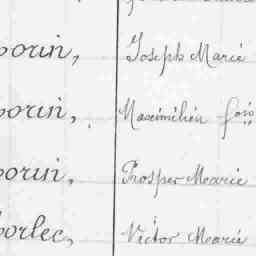 orin, Joseph Marie
orin, Maximilien
orin, Prosper Marie
orlec, Victor Marie